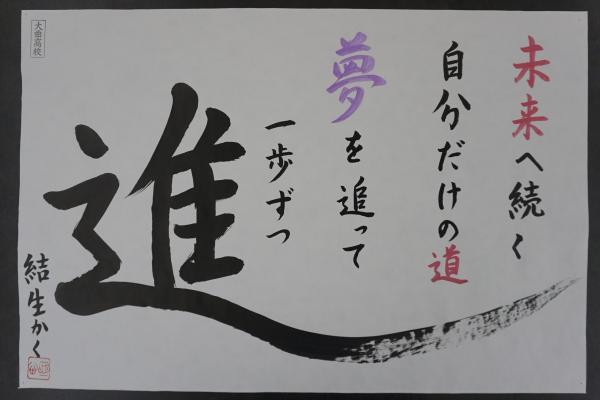 未来へ続く
自分だけの道
夢を追って
一歩ずつ
進
結生かく
大垂高校